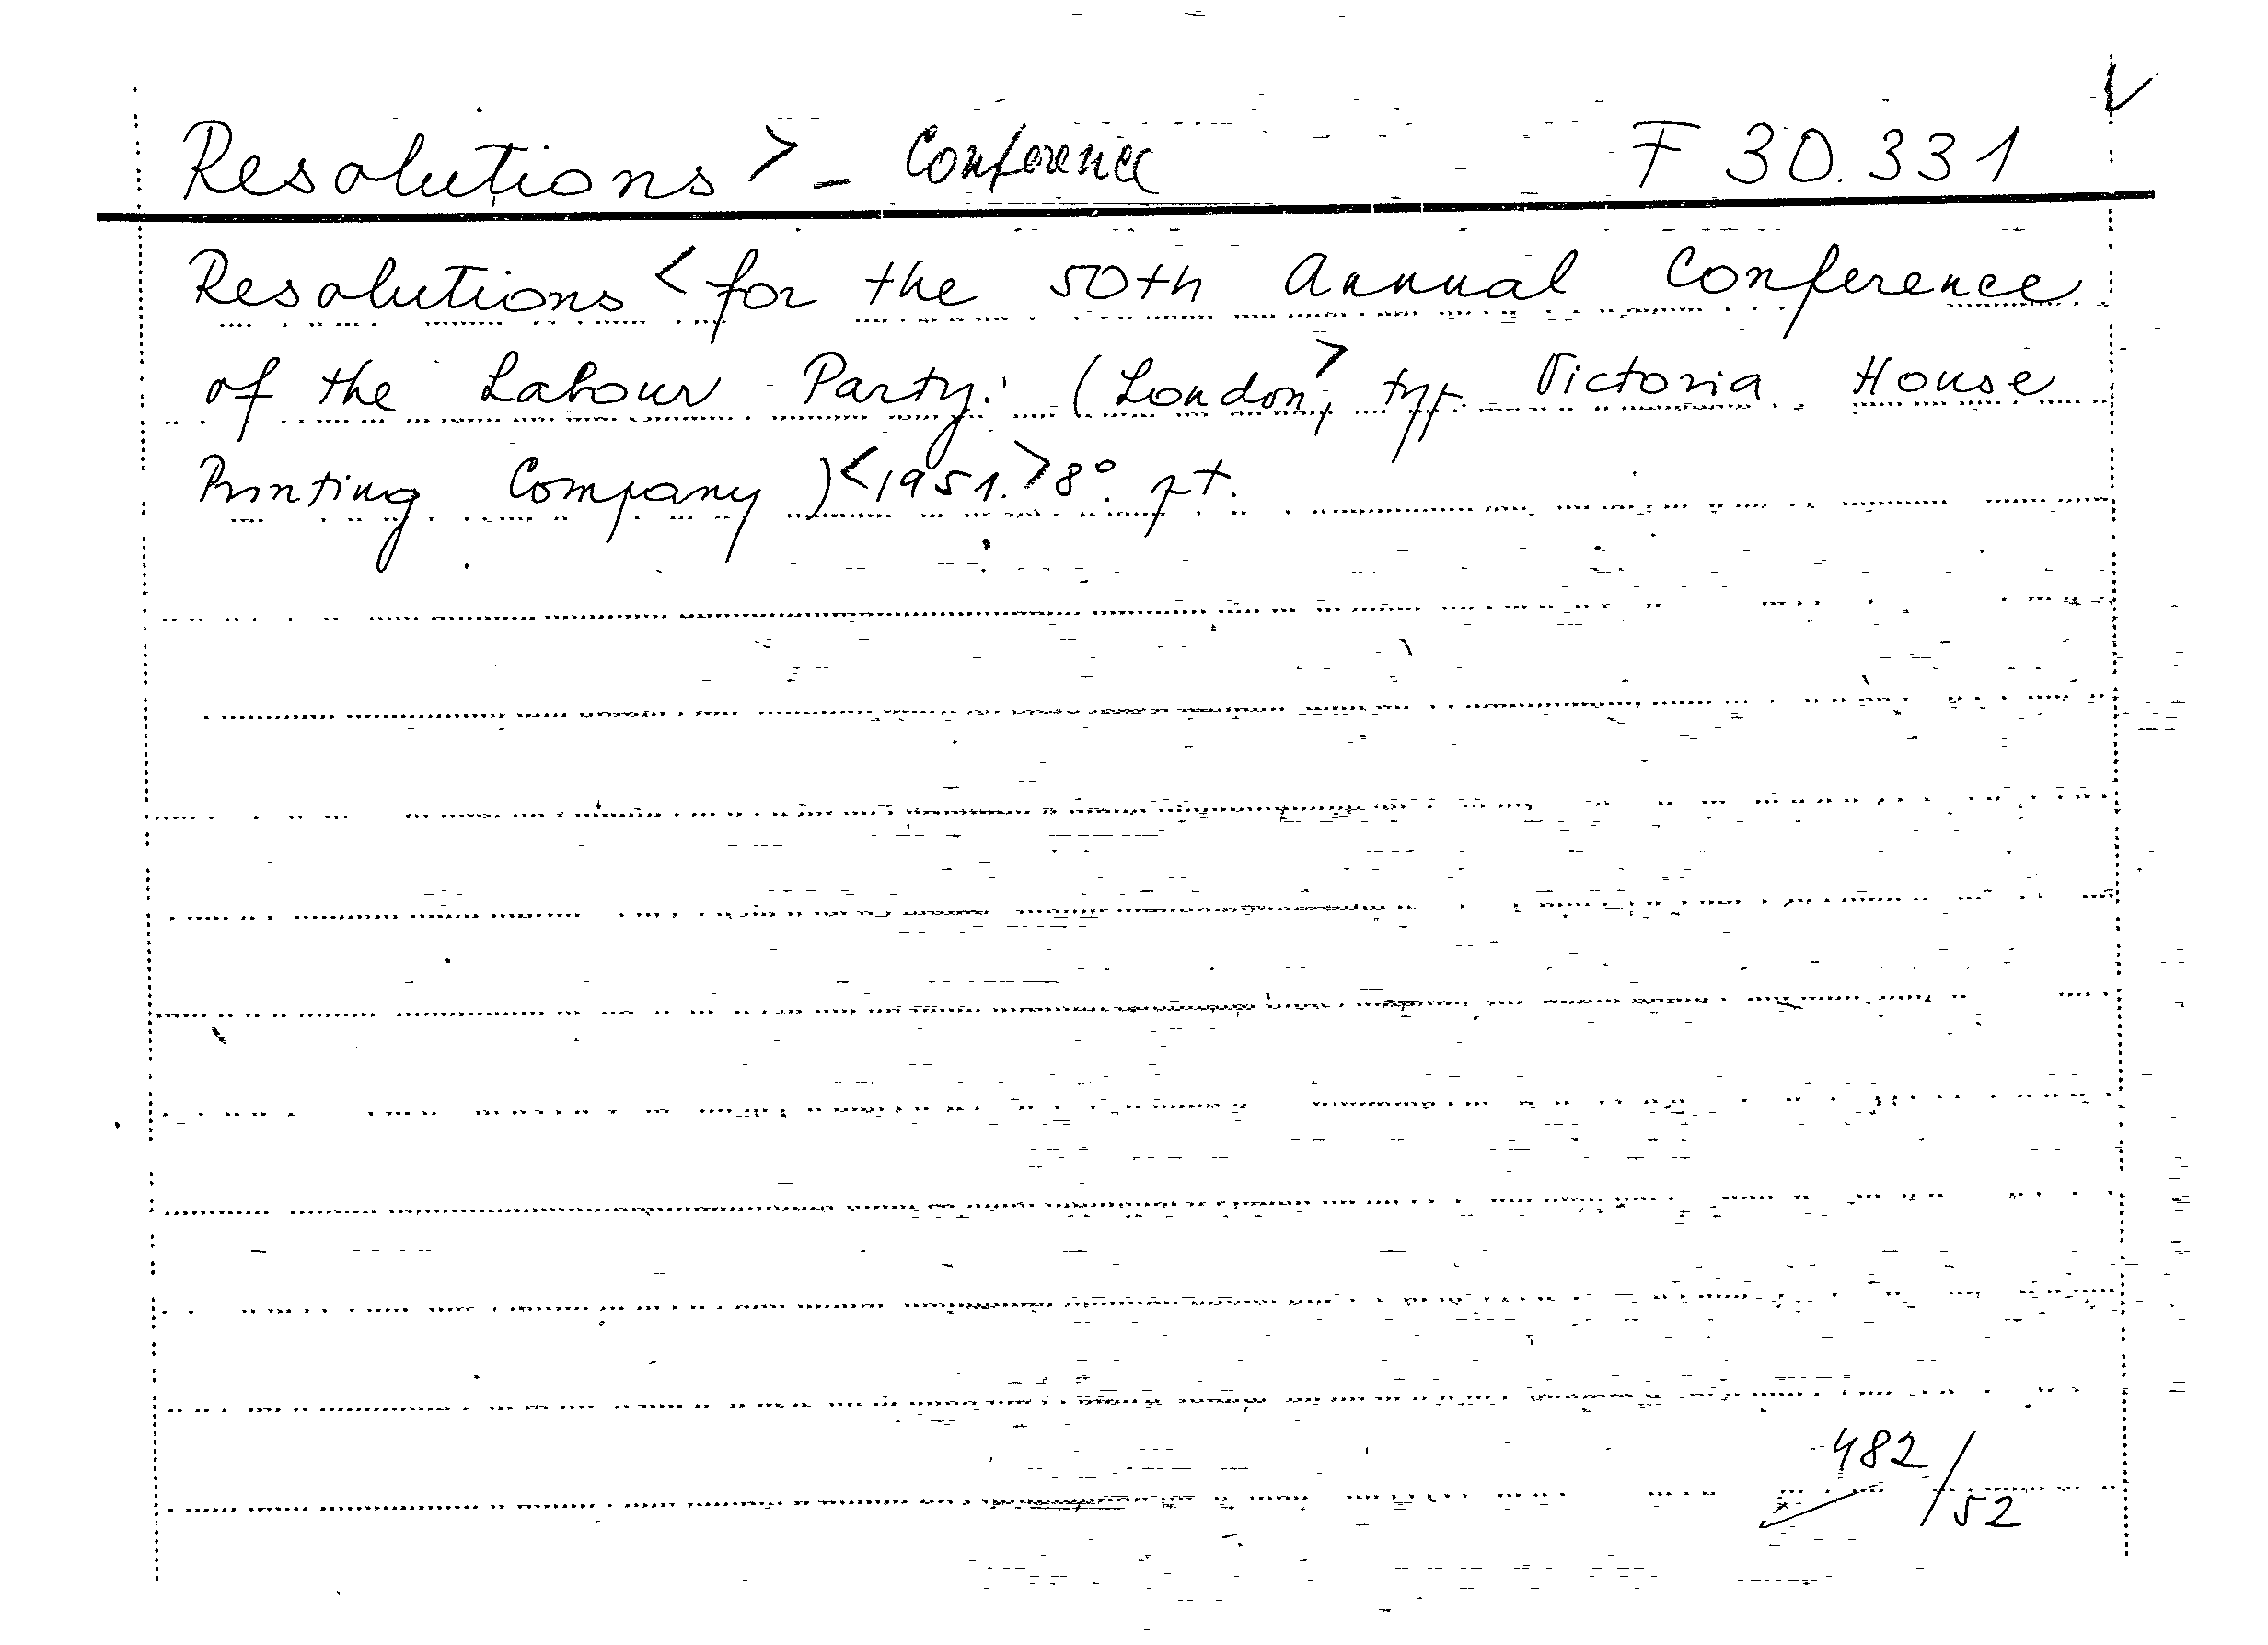 Resolutions > - Conference F 30.331
Resolutions < for the 50th Annual Conference
of the Labour Party. (London>, typ. Victoria House
Printing Company) <1951.> 8°. pt.
482/52